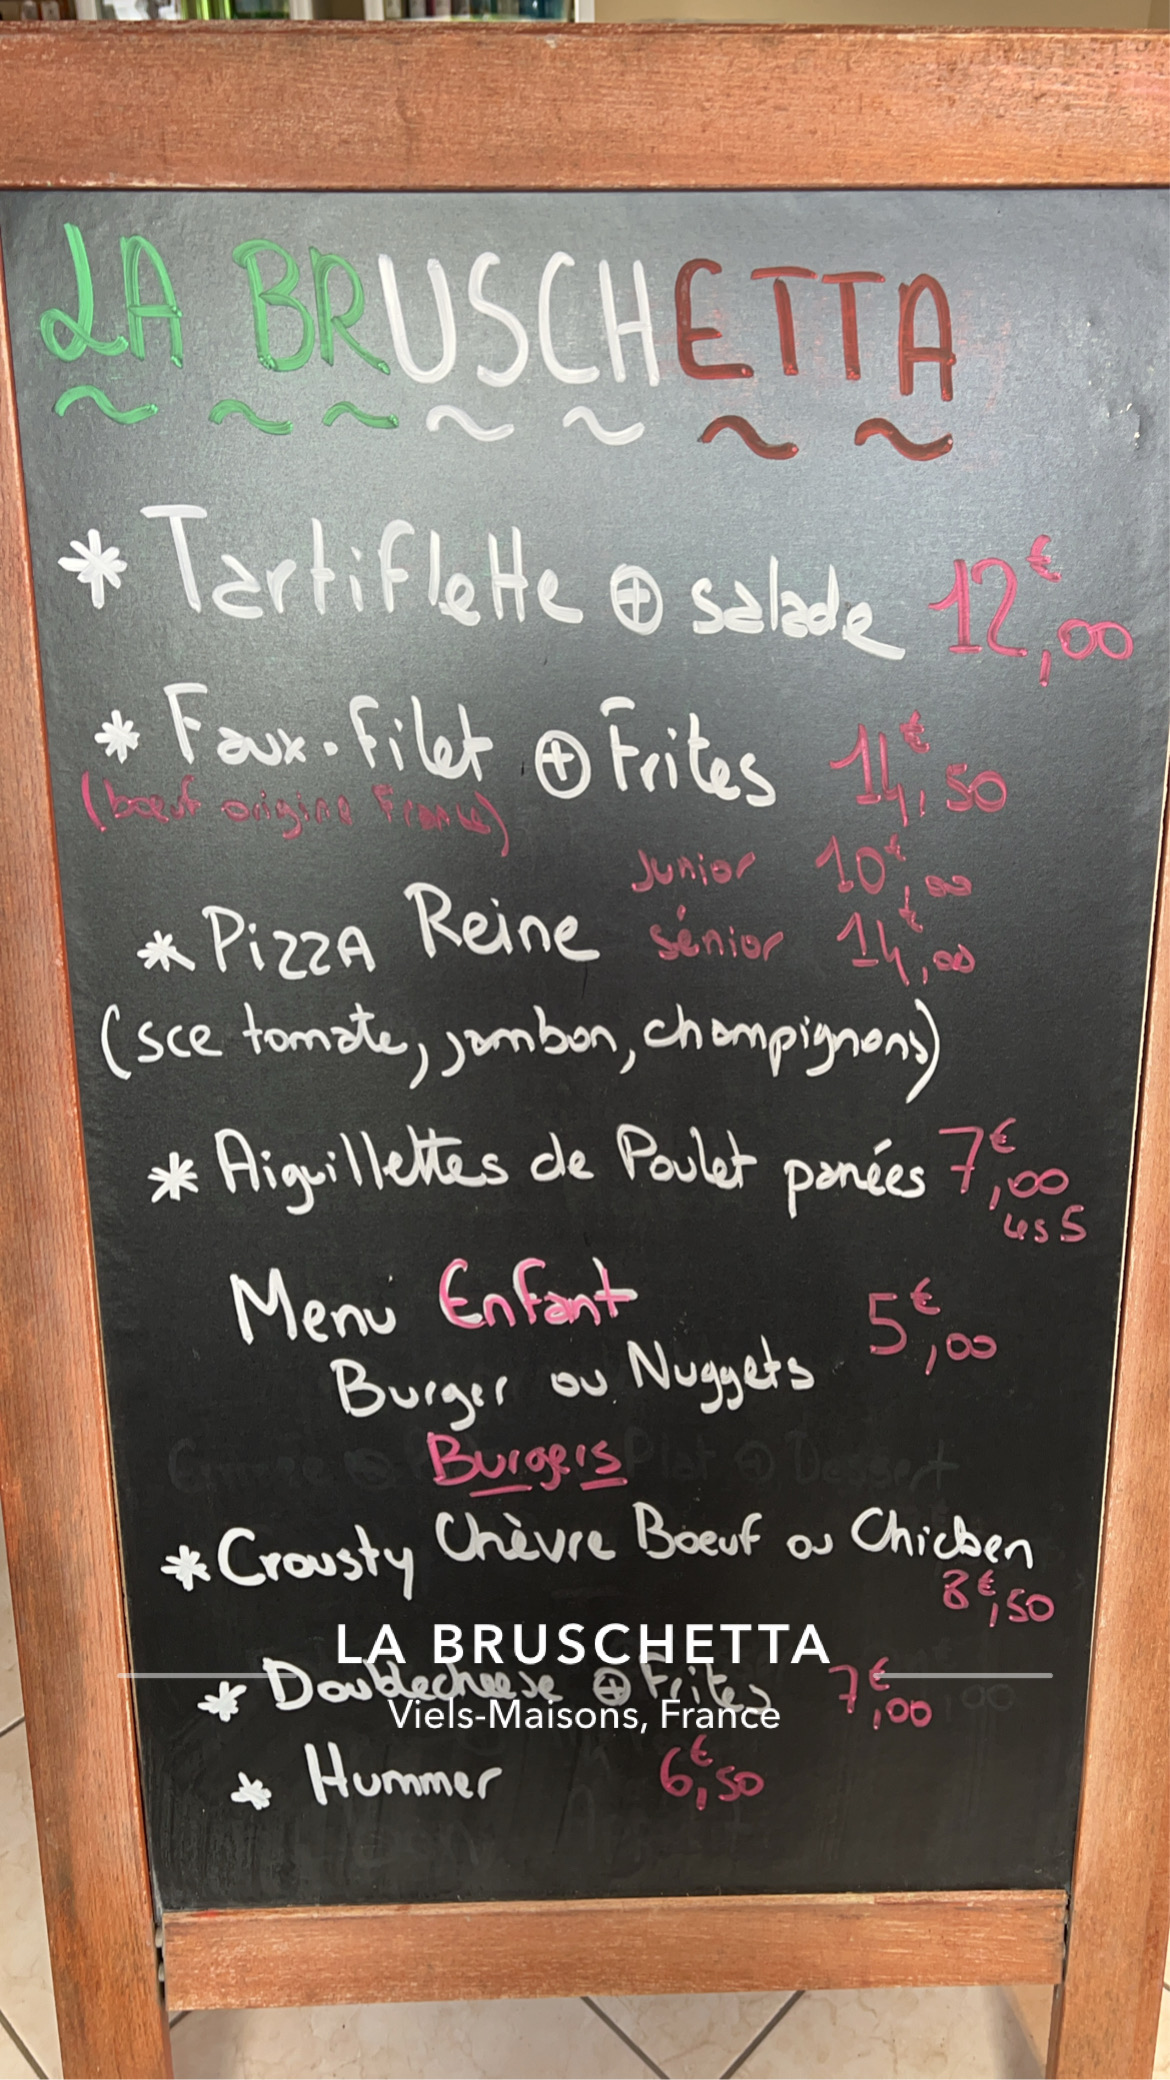 LA BRUSCHETTA
* Tartiflette ⊕ salade 12€,00
* Faux-filet ⊕ Frites 14€,50
(bœuf origine France)
Junior 10€,00
* PizzA Reine sénior 14€,00
(sce tomate, jambon, champignons)
* Aiguillettes de Poulet panées 7€,00
les 5
Menu Enfant 5€,00
Burger ou Nuggets
Burgers
Plat ⊕ Dessert
* Crousty Chèvre Boeuf ou Chicken
8€,50
LA BRUSCHETTA
* Doublecheese ⊕ Frites 7€,00
Viels-Maisons, France
* Hummer 6€,50